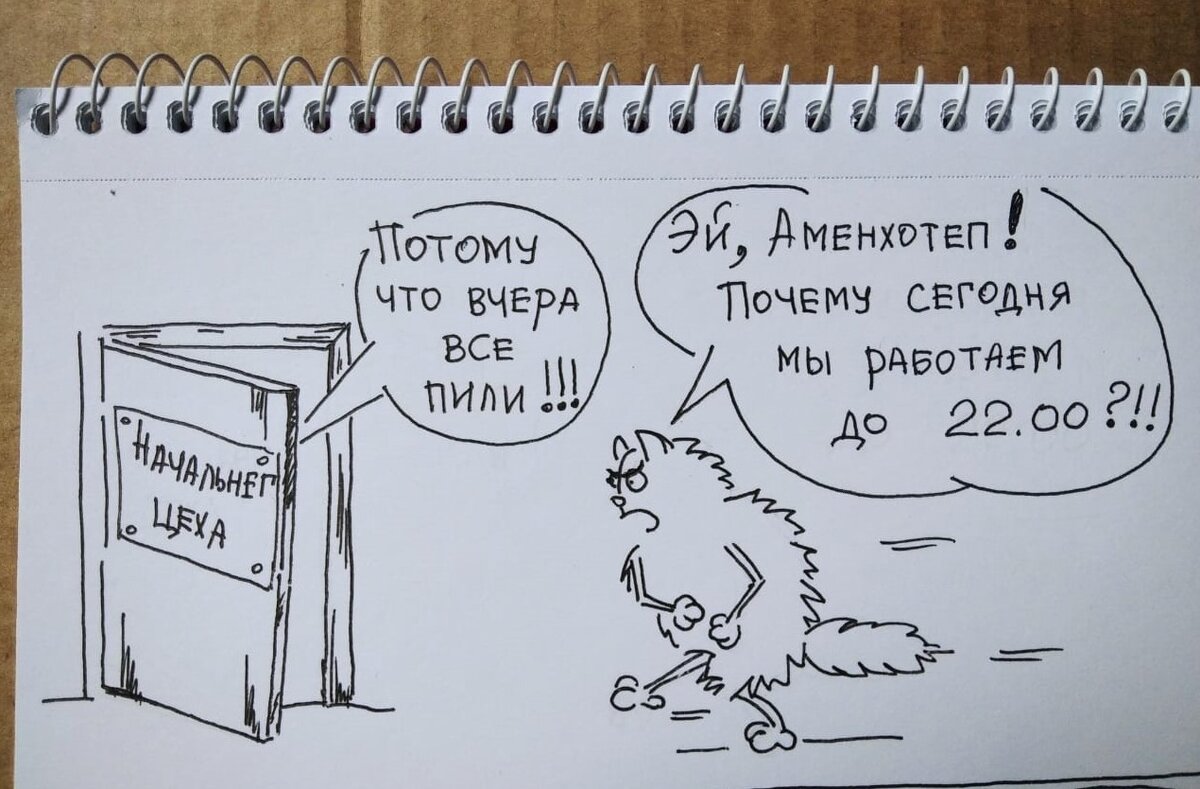 Эй, Аменхотеп!
Почему сегодня
мы работаем
до 22.00?!!
Потому
что вчера
все
пили!!!
Начальнег
цеха